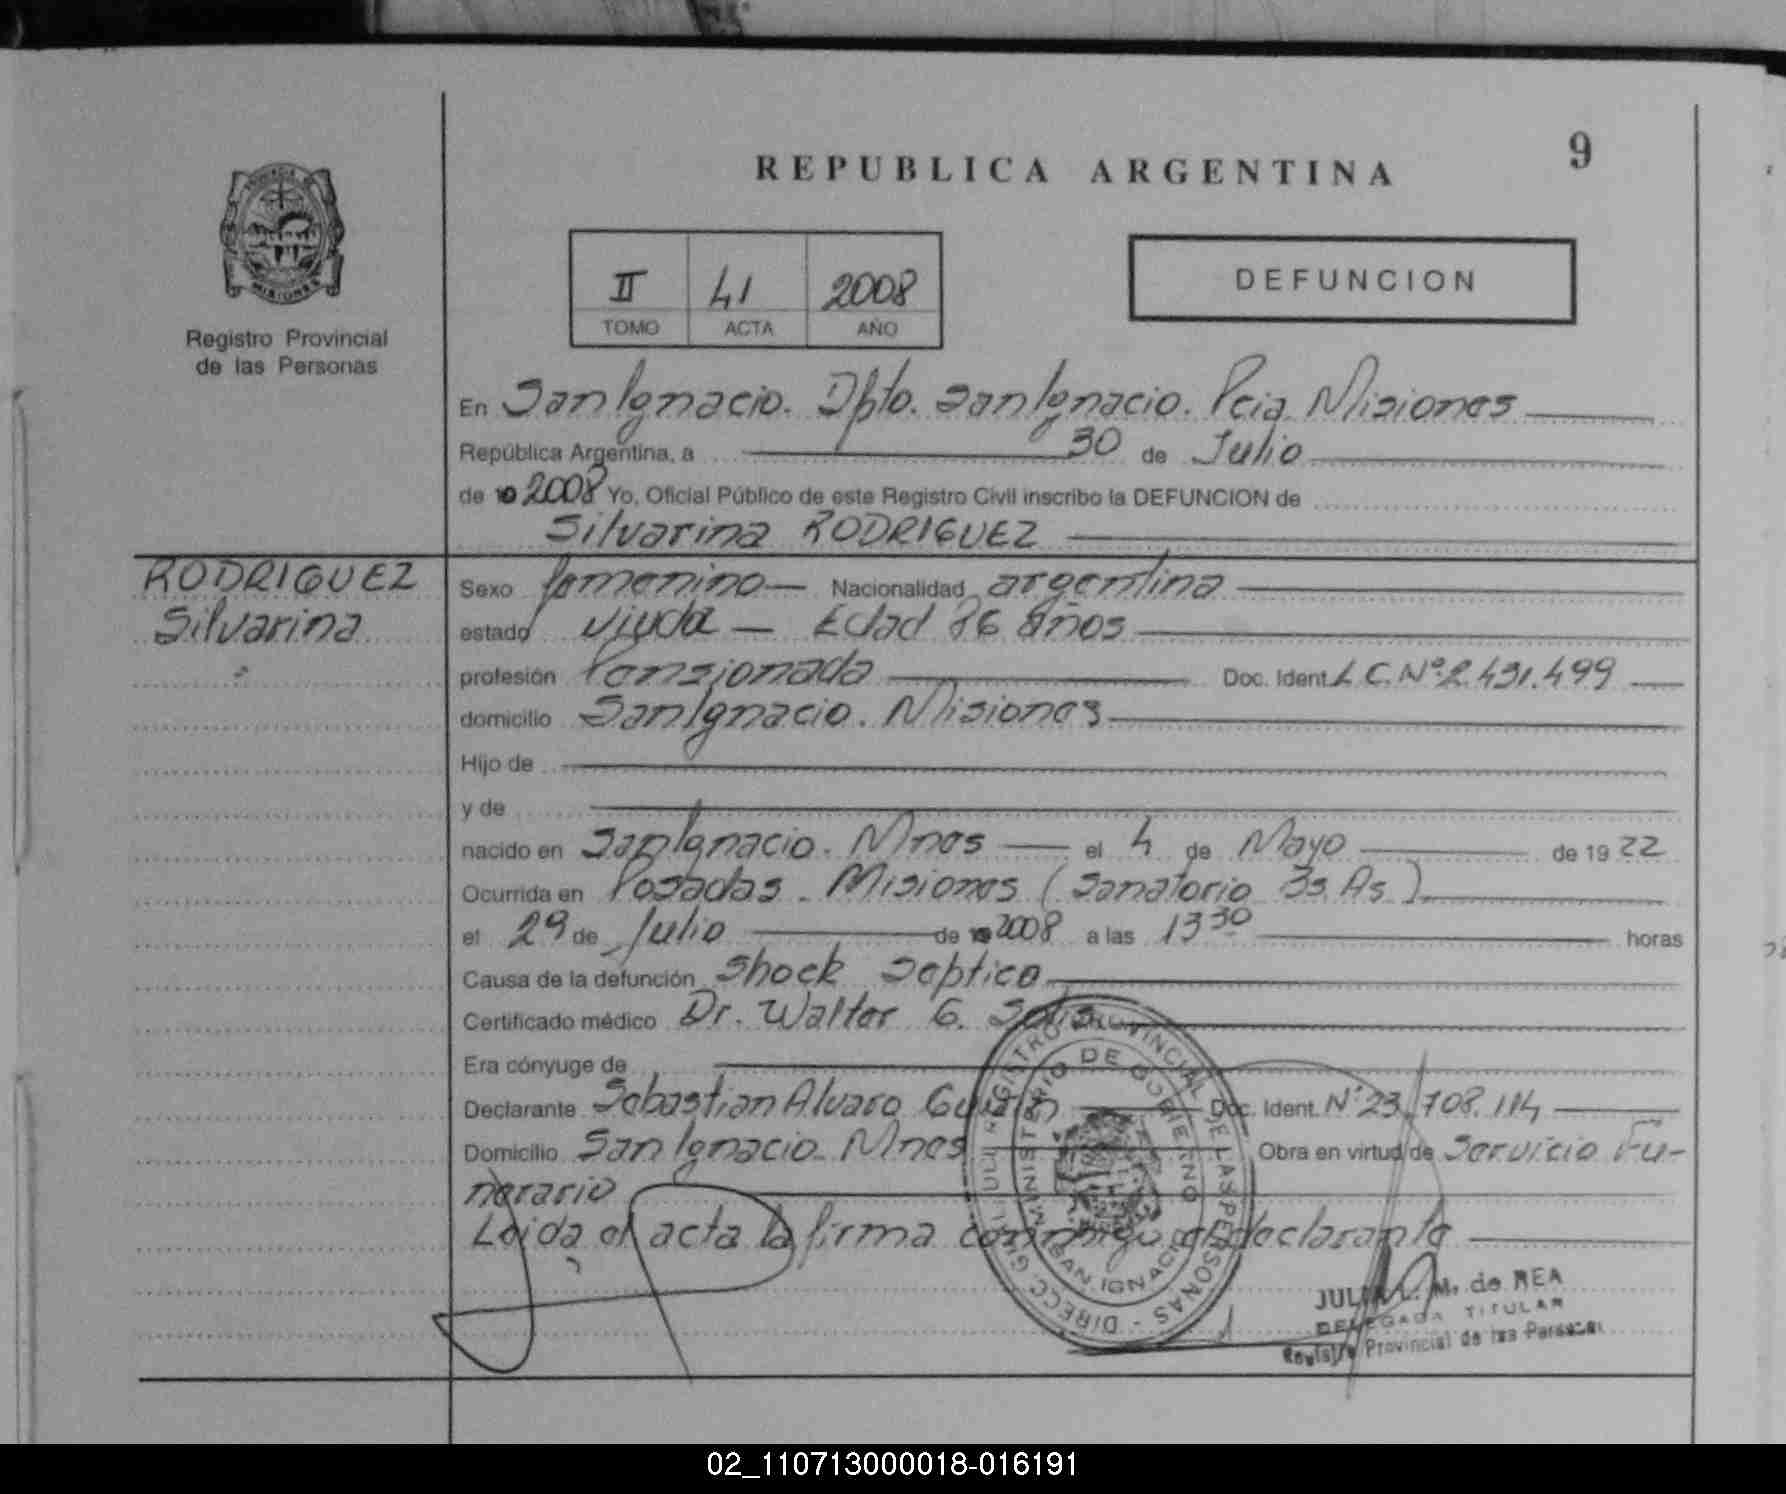 9
REPUBLICA ARGENTINA
MISIONES
Registro Provincial
de las Personas
II 41 2008
TOMO ACTA AÑO
DEFUNCION
En San Ignacio. Dpto. San Ignacio. Pcia. Misiones
República Argentina, a 30 de Julio
de 2008 Yo, Oficial Público de este Registro Civil inscribo la DEFUNCION de
Silvarina RODRIGUEZ
RODRIGUEZ
Silvarina
Sexo femenino Nacionalidad argentina
estado viuda - Edad 86 años
profesión Pensionada Doc. Ident. L.C. Nº 2.431.499
domicilio San Ignacio. Misiones
Hijo de
y de
nacido en San Ignacio. Mnes el 4 de Mayo de 1922
Ocurrida en Posadas - Misiones (Sanatorio Bs. As.)
el 29 de Julio de 2008 a las 13 30 horas
Causa de la defunción Shock Septico
Certificado médico Dr. Walter G. Solis
Era cónyuge de
Declarante Sebastian Alvaro Doc. Ident. Nº 23.708.114
Domicilio San Ignacio. Mnes Obra en virtud de Servicio Fu-
nerario
Leida el acta la firma conmigo el declarante
DIRECC. GRAL. DEL REGISTRO PROVINCIAL DE LAS PERSONAS
MINISTERIO DE GOBIERNO
SAN IGNACIO
M. de REA
DELEGADA TITULAR
Registro Provincial de las Personas
02_110713000018-016191